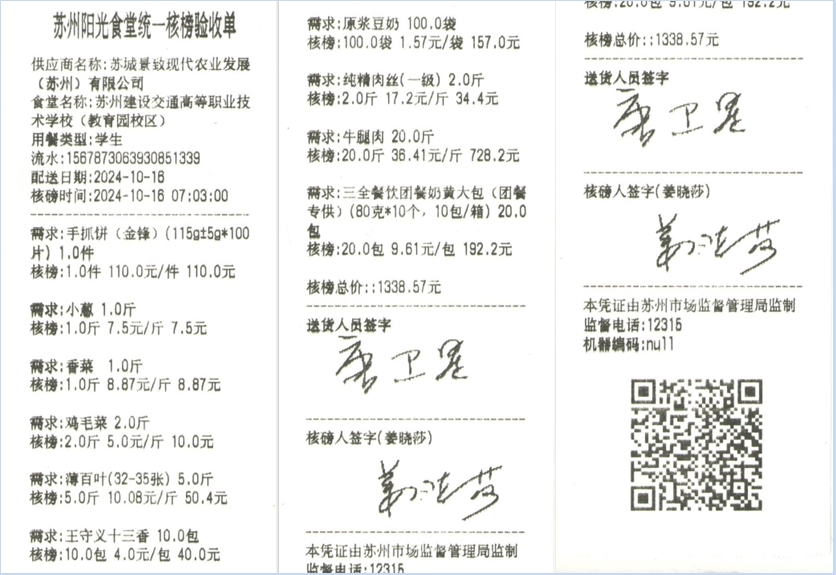 苏州阳光食堂统一核榜验收单
供应商名称:苏城景致现代农业发展
（苏州）有限公司
食堂名称:苏州建设交通高等职业技
术学校（教育园校区）
用餐类型:学生
流水:1567873063930851339
配送日期:2024-10-16
核磅时间:2024-10-16 07:03:00
需求:手抓饼（金锋）(115g±5g*100
片) 1.0件
核榜:1.0件 110.0元/件 110.0元
需求:小葱 1.0斤
核榜:1.0斤 7.5元/斤 7.5元
需求:香菜 1.0斤
核榜:1.0斤 8.87元/斤 8.87元
需求:鸡毛菜 2.0斤
核榜:2.0斤 5.0元/斤 10.0元
需求:薄百叶(32-35张) 5.0斤
核榜:5.0斤 10.08元/斤 50.4元
需求:王守义十三香 10.0包
核榜:10.0包 4.0元/包 40.0元
需求:原浆豆奶 100.0袋
核榜:100.0袋 1.57元/袋 157.0元
需求:纯精肉丝(一级) 2.0斤
核榜:2.0斤 17.2元/斤 34.4元
需求:牛腿肉 20.0斤
核榜:20.0斤 36.41元/斤 728.2元
需求:三全餐饮团餐奶黄大包（团餐
专供）(80克*10个，10包/箱) 20.0
包
核榜:20.0包 9.61元/包 192.2元
核榜总价::1338.57元
送货人员签字
唐卫星
核磅人签字(姜晓莎)
姜晓莎
本凭证由苏州市场监督管理局监制
监督电话:12315
核榜:20.0包 9.61元/包 192.2元
核榜总价::1338.57元
送货人员签字
唐卫星
核磅人签字(姜晓莎)
姜晓莎
本凭证由苏州市场监督管理局监制
监督电话:12315
机器编码:null